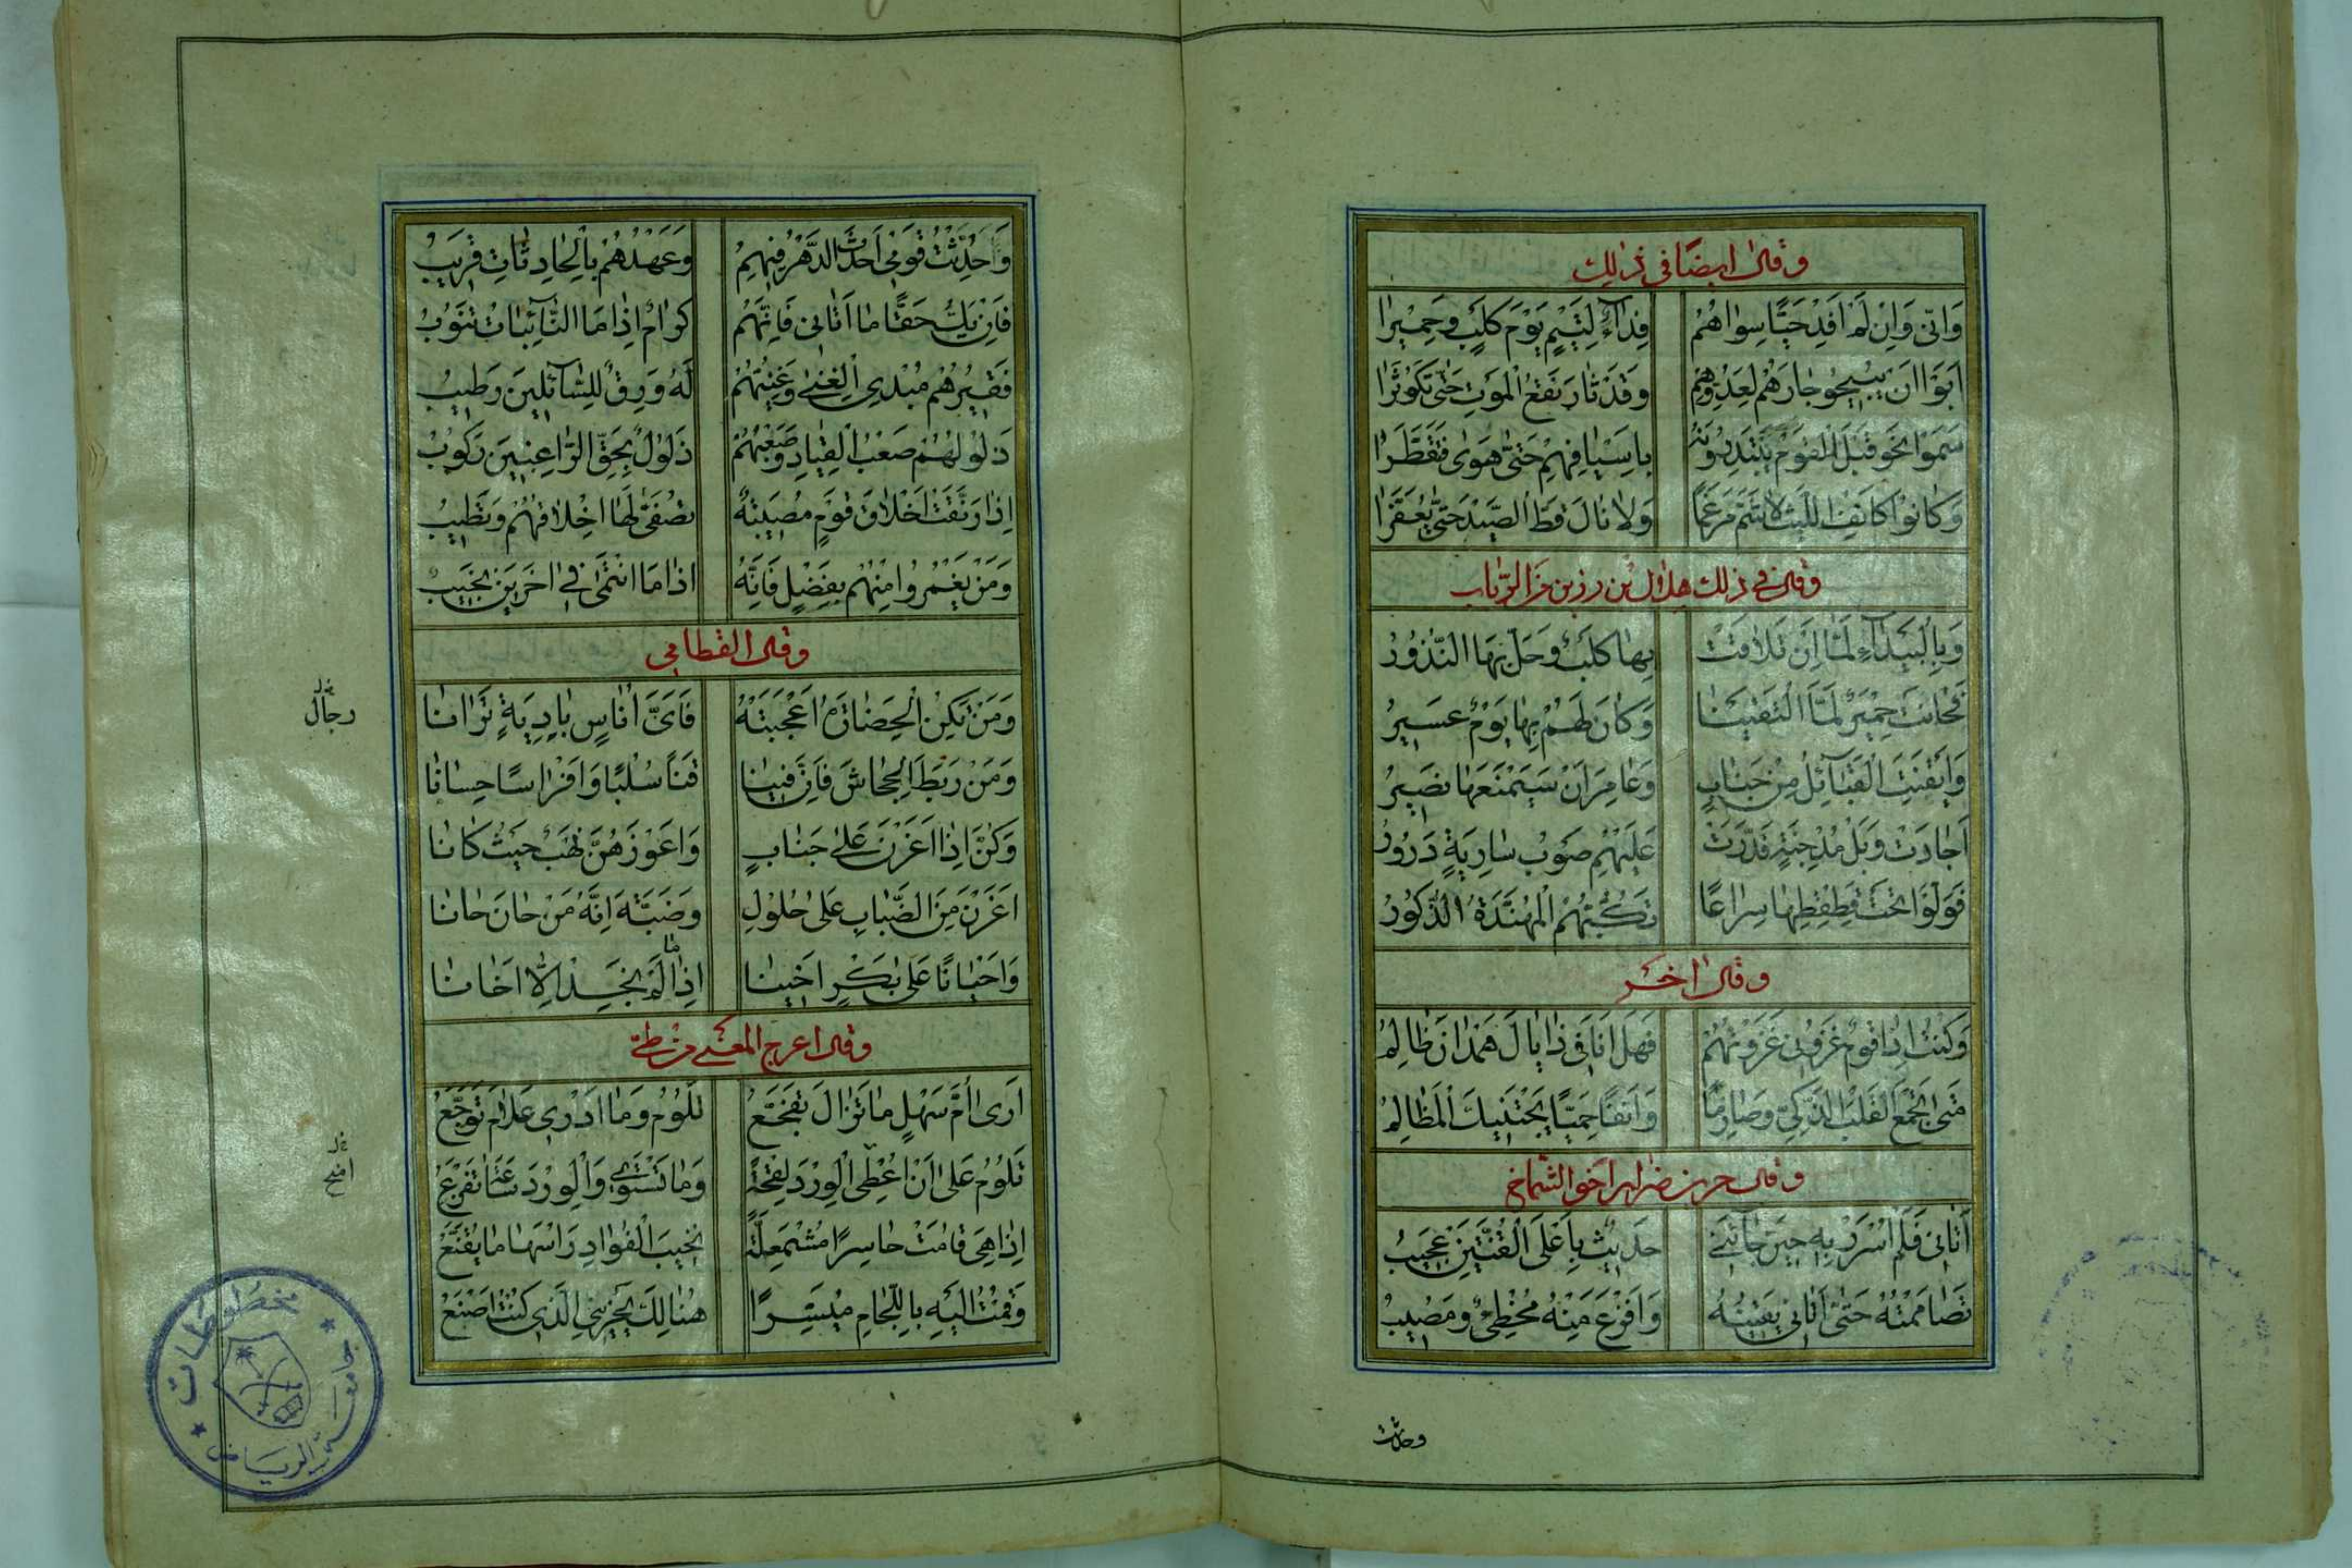 وقال ايضا في ذلك
وَاِنّى وَاِنْ لَمْ اَفْدِ حَيًّا سِواهُمْ فِدَآءٌ لِتَيْمٍ يَوْمَ كَلْبٍ وَحِمْيَرا
اَبَوْا اَن يُبيحُو جارَهُم لِعَدُوِّهِمْ وَقَدْ ثارَ نَقْعُ الْمَوْتِ حَتّى تَكَوْثَرا
سَمَوْا نَحْوَ قَيْلِ الْقَوْمِ يَبْتَدِرُونَهُ باَسْيافِهِمْ حَتّى هَوى فَتَقَطَّرا
وَكانُوا كاَنْفِ اللَّيْثِ لا شَمَّ مَرْغَمًا وَلا نالَ قطّ الصَّيْدَ حَتّى يُعَفَّرا
وقال في ذلك هلال بن رزين من الرباب
وَبِالْبَيْدَآءِ لَمّا اَنْ تَلاقَتْ بِها كَلْبٌ وَحَلَّ بِهَا النُّذُورُ
فَحانَتْ حِمْيَرٌ لَمَّا الْتَقَيْنا وَكانَ لَهُمْ بِها يَوْمٌ عَسيرُ
وَاَيْقَنَتِ الْقَبائِلُ مِنْ جَنابٍ وَعامِرَ اَنْ سَيَمْنَعُها نَصيرُ
اَجادَتْ وَبْلَ مُدْجِنَةٍ فَدَرَّتْ عَلَيْهِمْ صَوْبَ سارِيَةٍ دَرُورُ
فَوَلَّوْا تَحْتَ قِطْقِطِها سِراعًا تَكُبُّهُمُ الْمُهَنَّدَةُ الذُّكُورُ
وقال اخر
وَكُنْتُ اِذا قَوْمٌ غَزَوْنى غَزَوْتُهُمْ فَهَلْ اَنَا فى ذا يالَ هَمْدانَ ظالِمُ
مَتى تَجْمَعِ الْقَلْبَ الذَّكِيَّ وَصارِمًا وَاَنْفًا حَمِيًّا تَجْتَنِبْكَ الْمَظالِمُ
وقال جزء بن ضرار اخو الشماخ
اَتانى فَلَمْ اُسْرَرْ بِهِ حينَ جاءَنى حَديثٌ بِاَعْلَى الْقُنَّتَيْنِ عَجيبُ
تَصامَمْتُهُ حَتّى اَتانى يَقينُهُ وَاَفْزَعَ مِنْهُ مُخْطِئٌ وَمُصيبُ
وحدثت
وَحُدِّثْتُ قَوْمى اَحْدَثَ الدَّهْرُ فيهِمُ وَعَهْدُهُمْ بِالْحادِثاتِ قَريبُ
فَاِنْ يَكُ حَقًّا ما اَتانى فَاِنَّهُمْ كِرامٌ اِذا مَا النّائِباتُ تَنُوبُ
فَقيرُهُم مُبْدِى الْغِنى وَغَنِيُّهُمْ لَهُ وَرِقٌ لِلسّآئِلينَ رَطيبُ
ذَلُولُهُمْ صَعْبُ الْقِيادِ وَصَعْبُهُمْ ذَلُولٌ بِحَقِّ الرّاغِبينَ رَكُوبُ
اِذا رَنَّقَتْ اَخْلاقَ قَوْمٍ مُصيبَةٌ تُصَفّى لَها اَخْلاقُهُمْ وَتَطيبُ
وَمَنْ يَغْمُرُوا مِنْهُمْ بِفَضْلٍ فَاِنَّهُ اذا مَا انْتَمى فى اخَرينَ نَجيبُ
وقال القطامي
وَمَنْ تَكُنِ الْحَضارَةُ اَعْجَبَتْهُ فَاَىَّ اُناسٍ بادِيَةٍ تَرانا
رجال
وَمَنْ رَبَطَ الْجِحاشَ فَاِنَّ فينا قَناً سُلْبًا وَاَفْراسًا حِسانا
وَكُنَّ اِذا اَغَرْنَ عَلى جَنابٍ وَاَعْوَزَهُنَّ نَهْبٌ حَيْثُ كانا
اَغَرْنَ مِنَ الضِّبابِ عَلى حُلُولٍ وَضَبَّةَ اِنَّهُ مَنْ حانَ حانا
وَاَحْيانًا عَلى بَكْرٍ اَخينا اِذا ما لَمْ نَجِدْ اِلّا اَخانا
وقال اعرج المعنى من طيّ
اَرى اُمَّ سَهْلٍ ما تَزالُ تَفَجَّعُ تَلُومُ وَما اَدْرى عَلامَ تَوَجَّعُ
تَلُومُ عَلى اَنْ اُعْطِىَ الْوِرْدَ لِقْحَةً وَما تَسْتَوى وَالْوِرْدَ ساعَةَ تَفْزَعُ
اِذا هِىَ قامَتْ حاسِرًا مُشْمَعِلَّةً نَخيبَ الْفُؤادِ رَاْسُها ما يُقَنَّعُ
وَقُمْتُ اِلَيْهِ بِاللِّجامِ مُيَسِّرًا هُنالِكَ يَجْزينى الَّذى كُنْتُ اَصْنَعُ
مخطوطات
جامعة الرياض